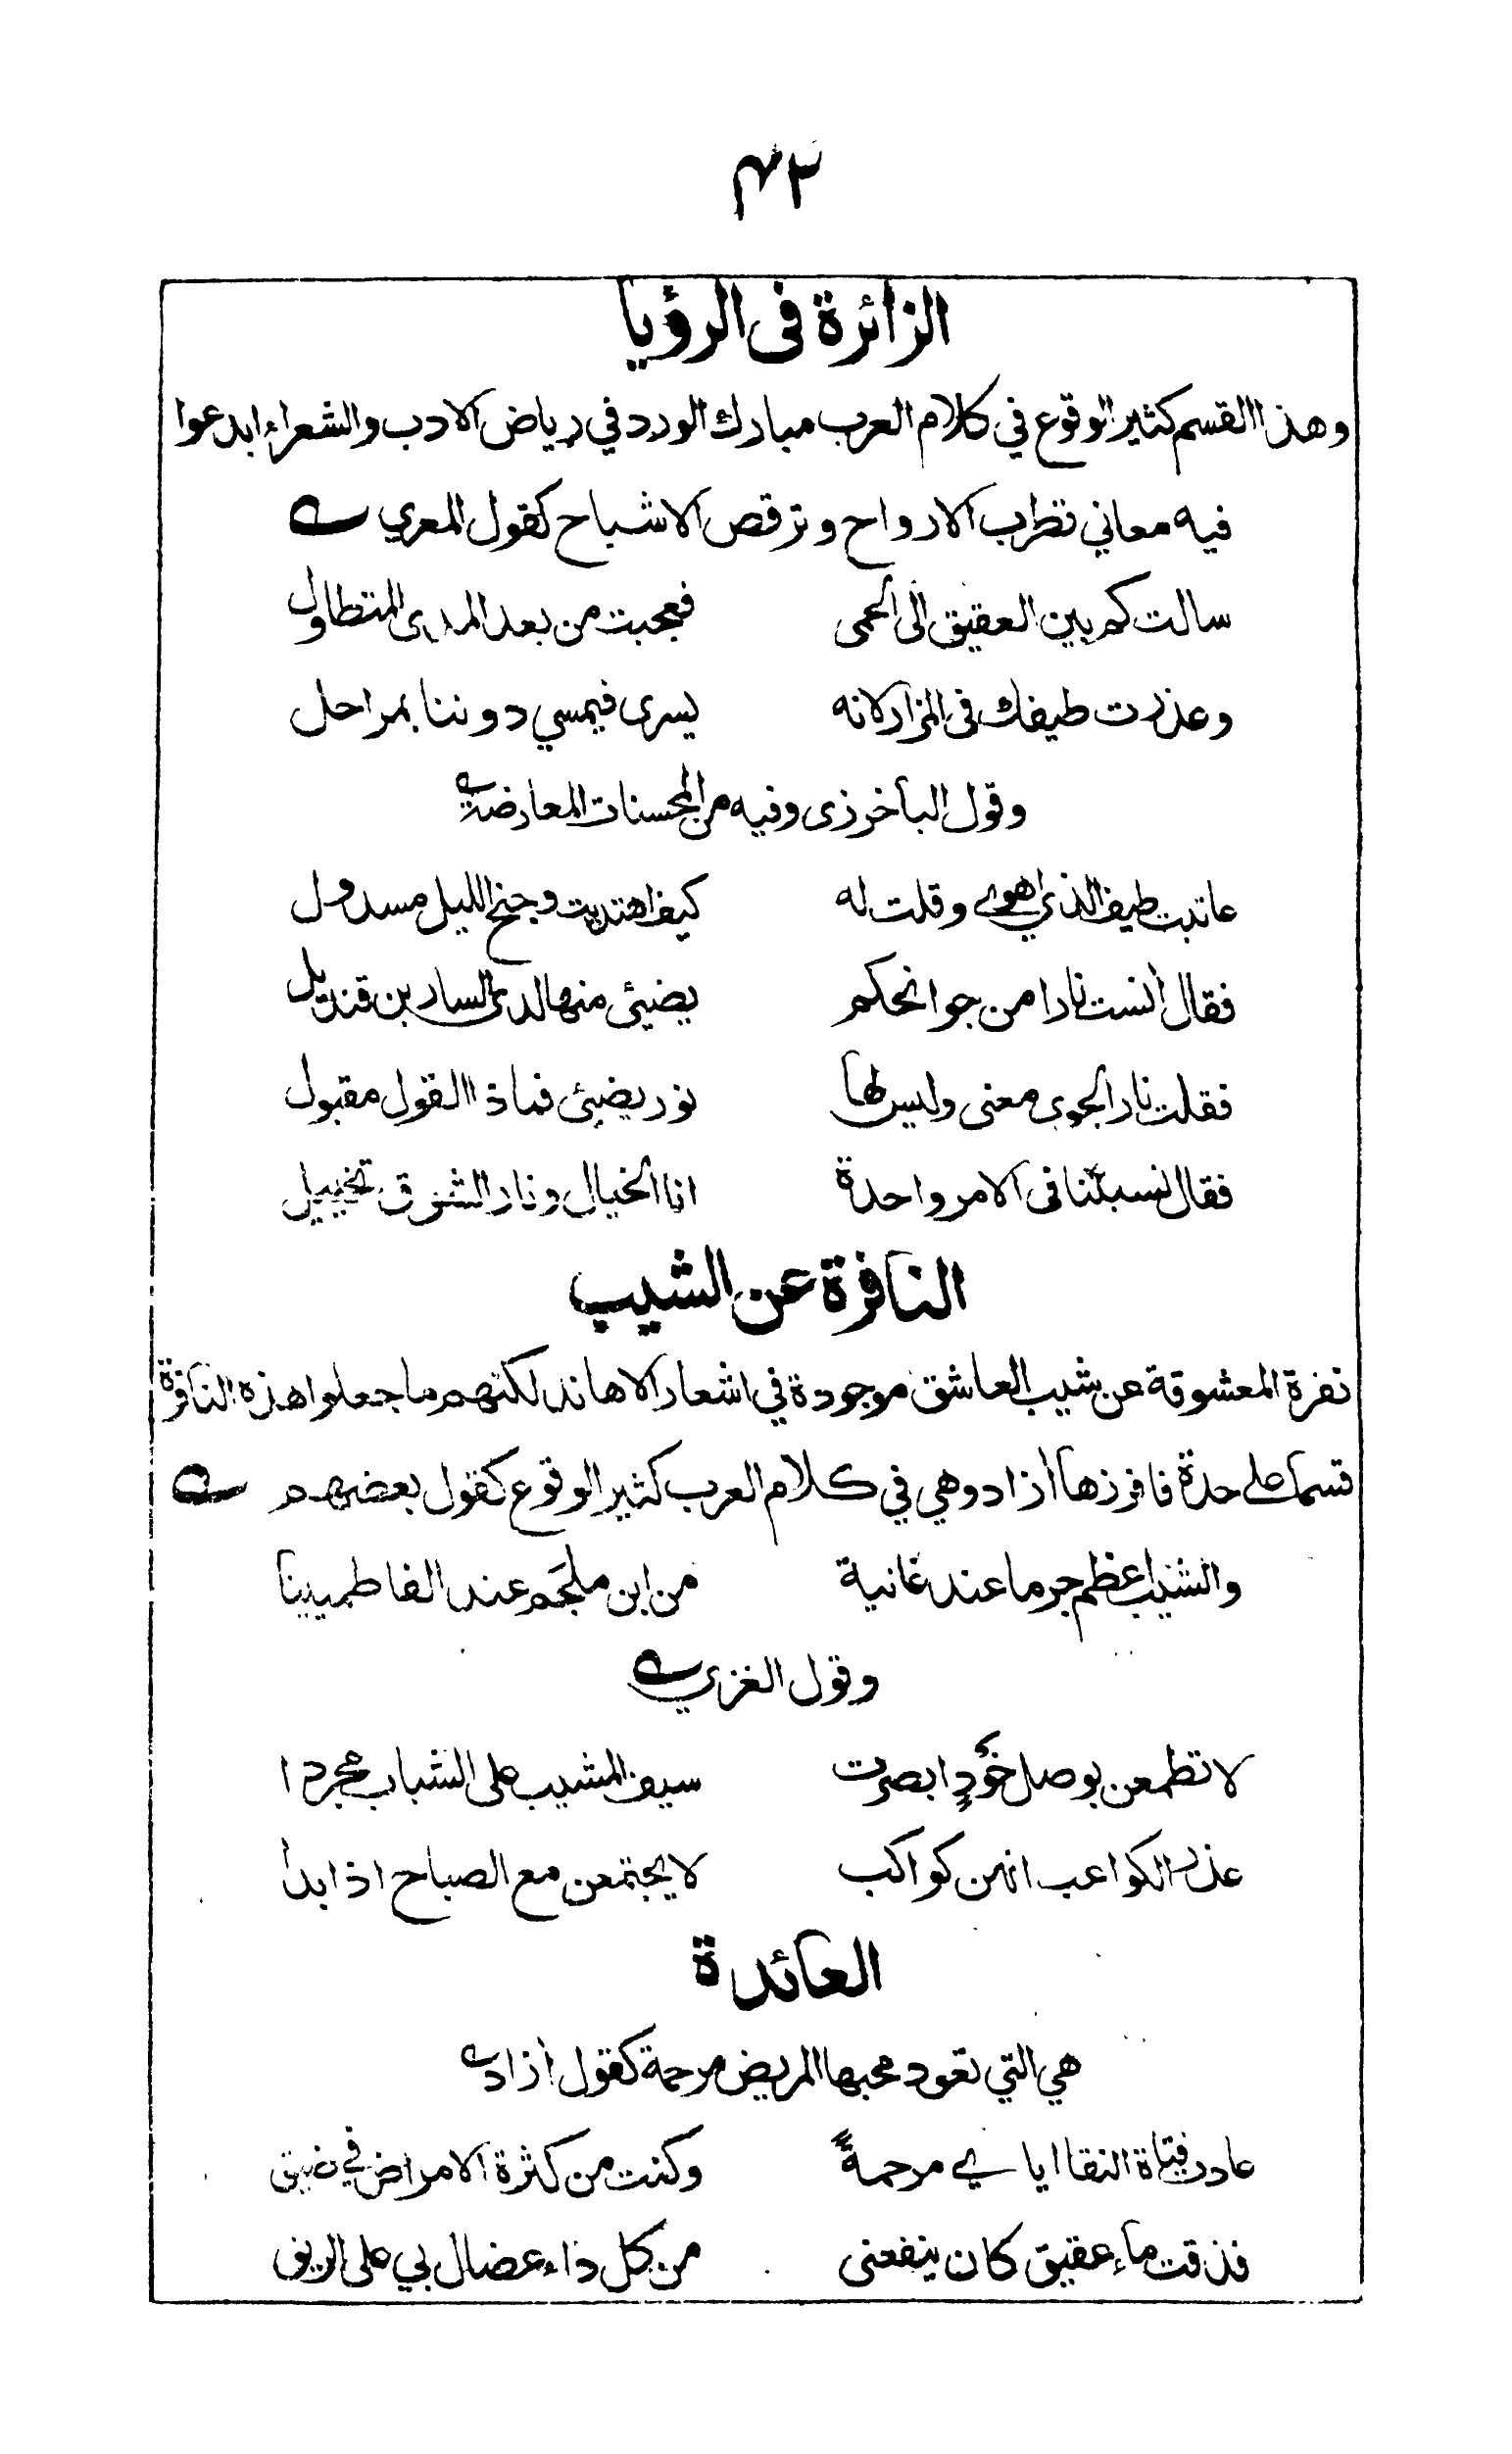 ٤٢
الزائرة فى الرؤيا
وهذا القسم كثير الوقوع في كلام العرب مبارك الورد في رياض الادب والشعراء ابدعوا
فيه معاني تطرب الارواح وترقص الاشباح كقول المعري
سالت كم بين العقيق الى الحمى فعجبت من بعد المدى المتطاول
وعذرت طيفك فى المزار لانه يسرى فيمسي دوننا بمراحل
وقول الباخرزى وفيه من المحسنات المعارضة
عاتبت طيف الذي اهوى وقلت له كيف اهتديت وجنح الليل مسدول
فقال أنست نارا من جوانحكم يضيئ منها لدى السارين قنديل
فقلت نار الجوى معنى وليس لها نور يضيئ فماذا القول مقبول
فقال نسبتنا فى الامر واحدة انا الخيال ونار الشوق تخييل
النافرة عن الشيب
نفرة المعشوقة عن شيب العاشق موجودة في اشعار الاهاند لكنهم ما جعلوا هذه النافرة
قسما على حدة فافرزها أزاد وهي في كلام العرب كثير الوقوع كقول بعضهم
والشيب اعظم جرما عند غانية من ابن ملجَم عند الفاطميينا
وقول الغزي
لا تطمعن بوصل خَودٍ ابصرت سيف المشيب على الشباب مجردا
عذر الكواعب انهن كواكب لا يجتمعن مع الصباح اذا بدا
العائدة
هي التي تعود محبها المريض مرحمة كقول أزاد
عادت فتاة النقا اياي مرحمةً وكنت من كثرة الامراض في ضيق
فذقت ماء عقيق كان ينفعنى من كل داء عضال بي على الريق